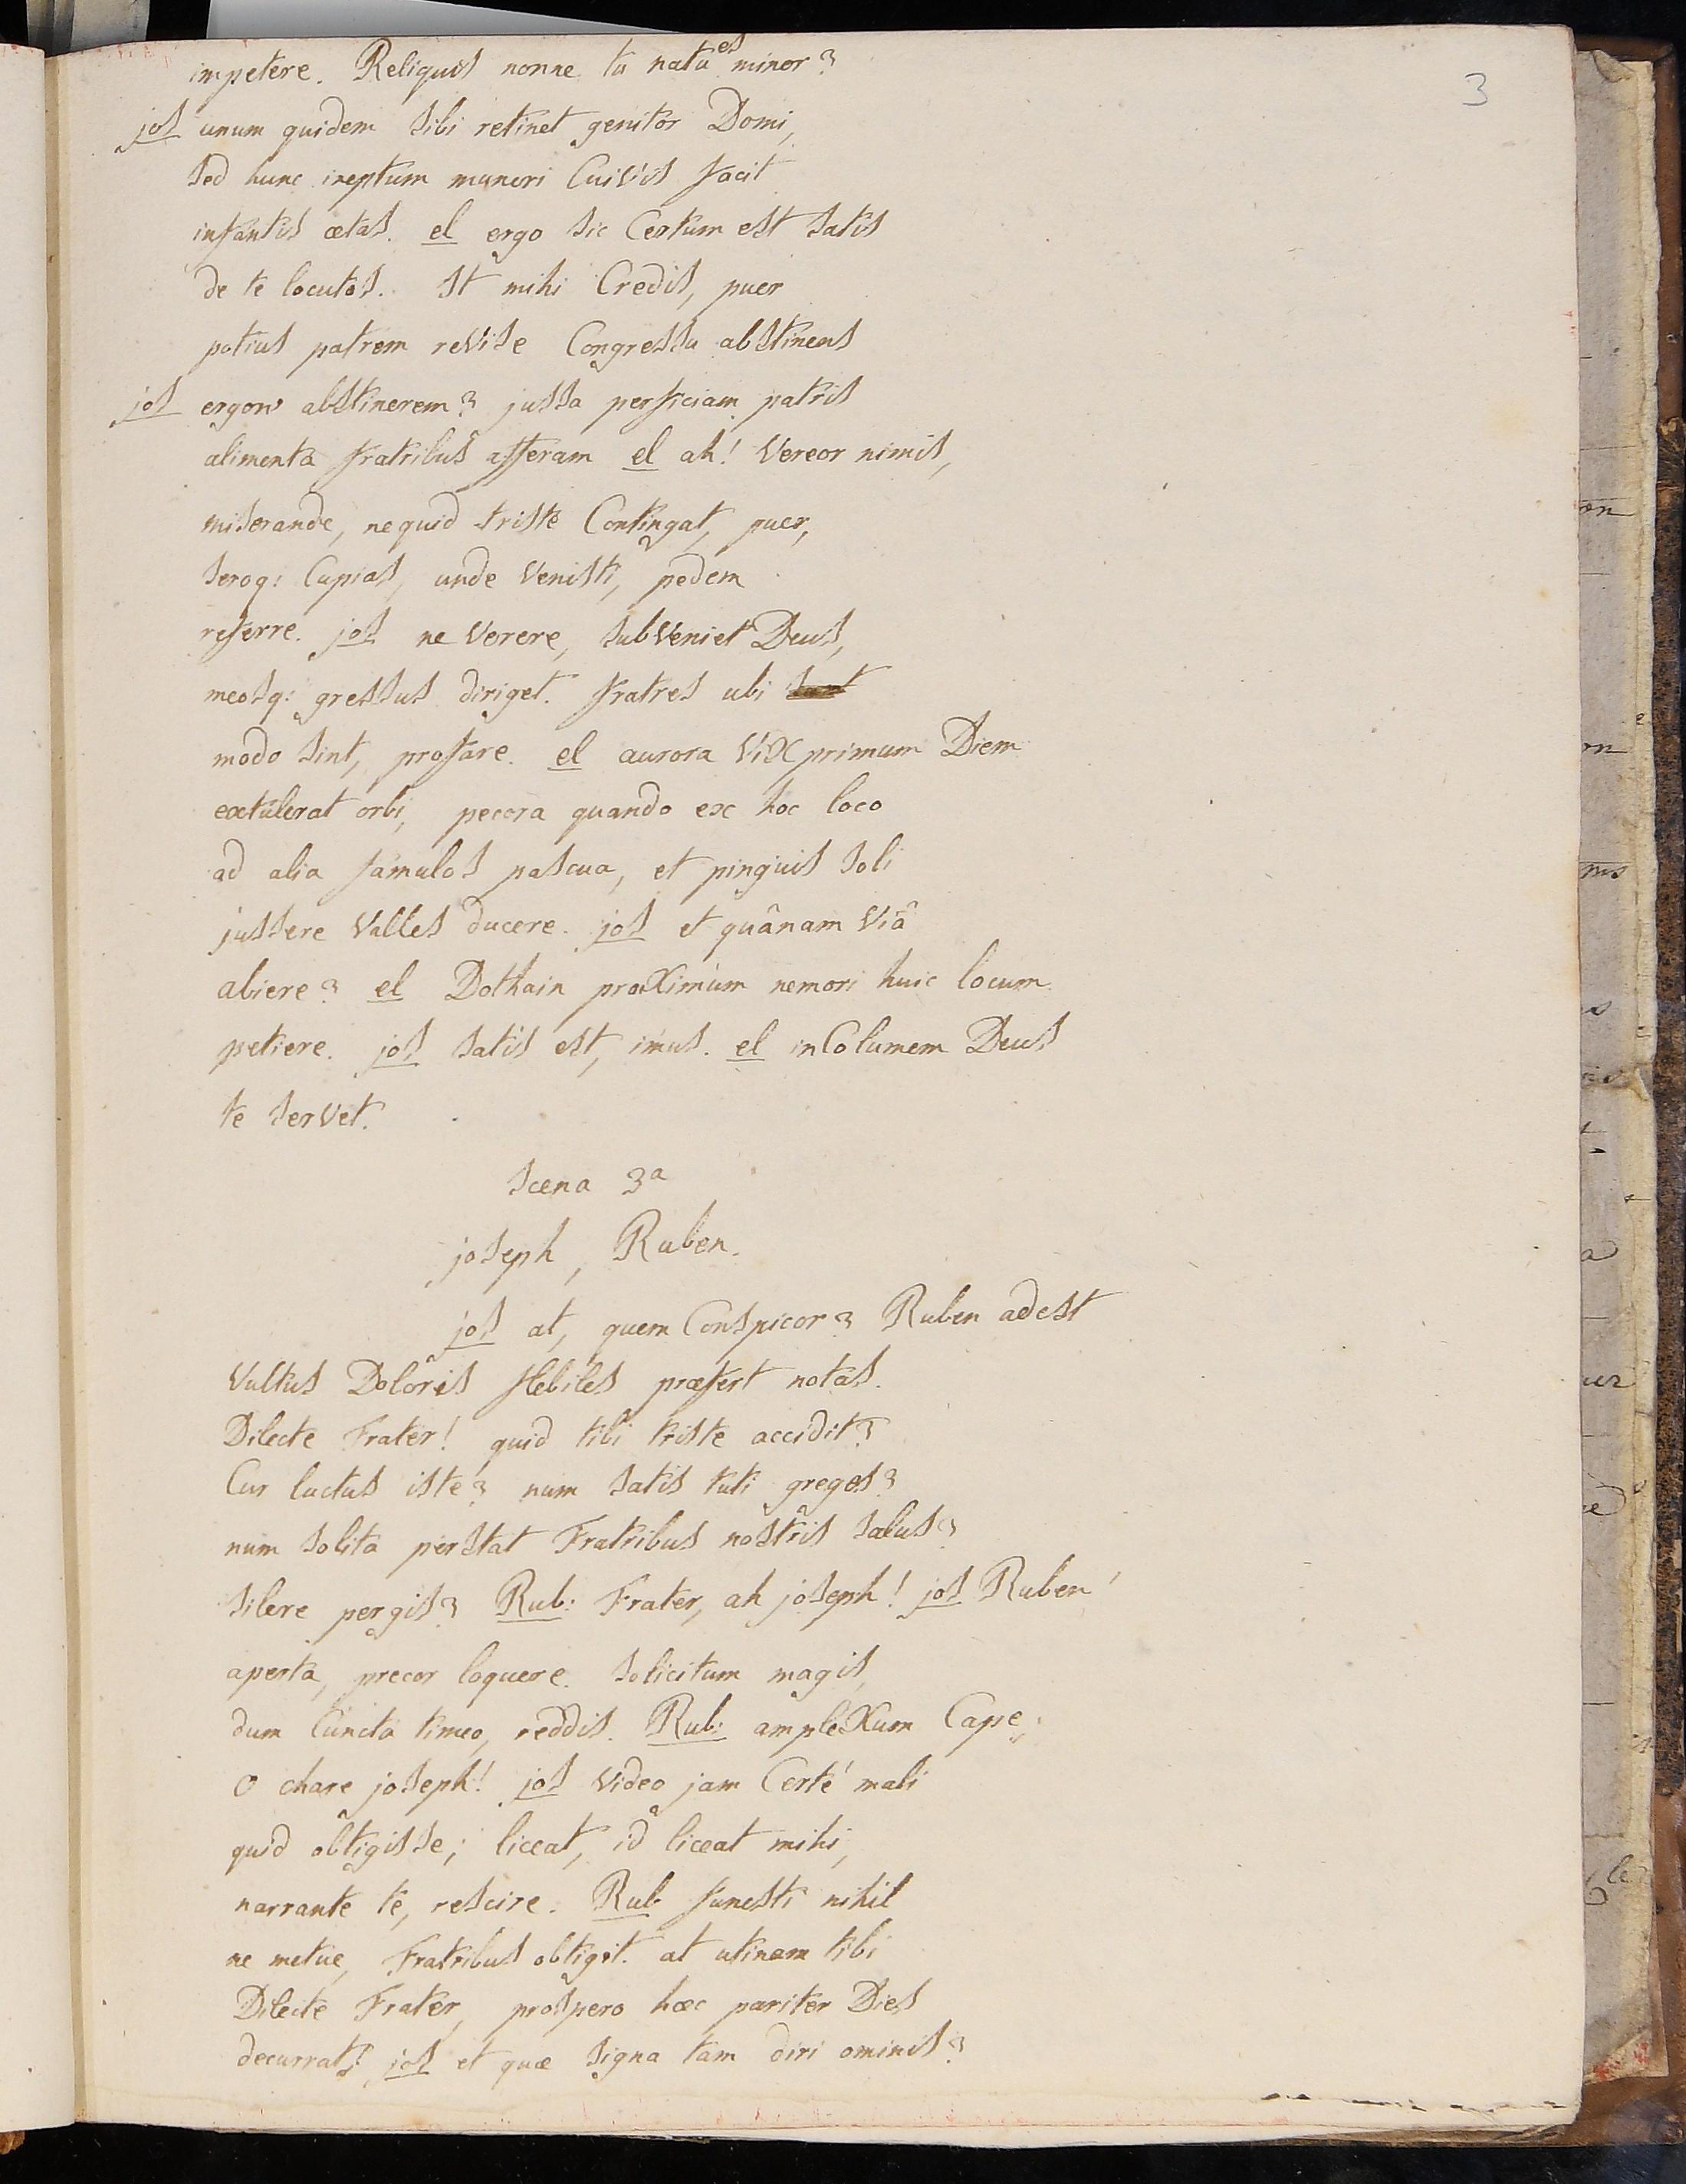 3
impetere. Reliquis nonne tu natu es minor?
jos unum quidem sibi retinet genitor Domi,
sed hunc ineptum muneri Cuivis facit
infantis ætas. el ergo sic Certum est satis
de te locutos. st mihi Credis, puer
potius patrem revise Congressu abstinens
jos ergow abstinerem? jussa perficiam patris
alimenta fratribus afferam el ah! Vereor nimis,
miserande, ne quid triste Contingat, puer,
seroq: Cupias, unde Venisti, pedem
referre. jos ne Verere, subveniet Deus,
meosq: gressus diriget. fratres ubi sunt
modo sint, profare. el aurora Vix primum Diem
extulerat orbi, pecora quando ex hoc loco
ad alia famulos pascua, et pinguis soli
jussere Valles ducere. jos et quânam Viâ
abiere? el Dothain proximum nemori huic locum
petiere. jos satis est, imus. el inColumem Deus
te servet.
Scena 3a
joseph, Ruben.
jos at, quem Conspicor? Ruben adest
Vultus Doloris flebiles præfert notas.
Dilecte Frater! quid tibi triste accidit?
Cur luctus iste? num satis tuti greges?
num solita perstat Fratribus nostris salus?
silere pergis? Rub: Frater, ah joseph! jos Ruben!
aperta, precor loquere. solicitum magis,
dum Cuncta timeo, reddis. Rub: amplexum Cape,
O chare joseph! jos Video jam Certé mali
quid obtigisse; liceat, id liceat mihi,
narrante te, rescire. Rub funesti nihil
ne metue, Fratribus obtigit. at utinam tibi
Dilecte Frater, prospero hæc pariter Dies
decurrat! jos et quæ signa tam diri ominis?